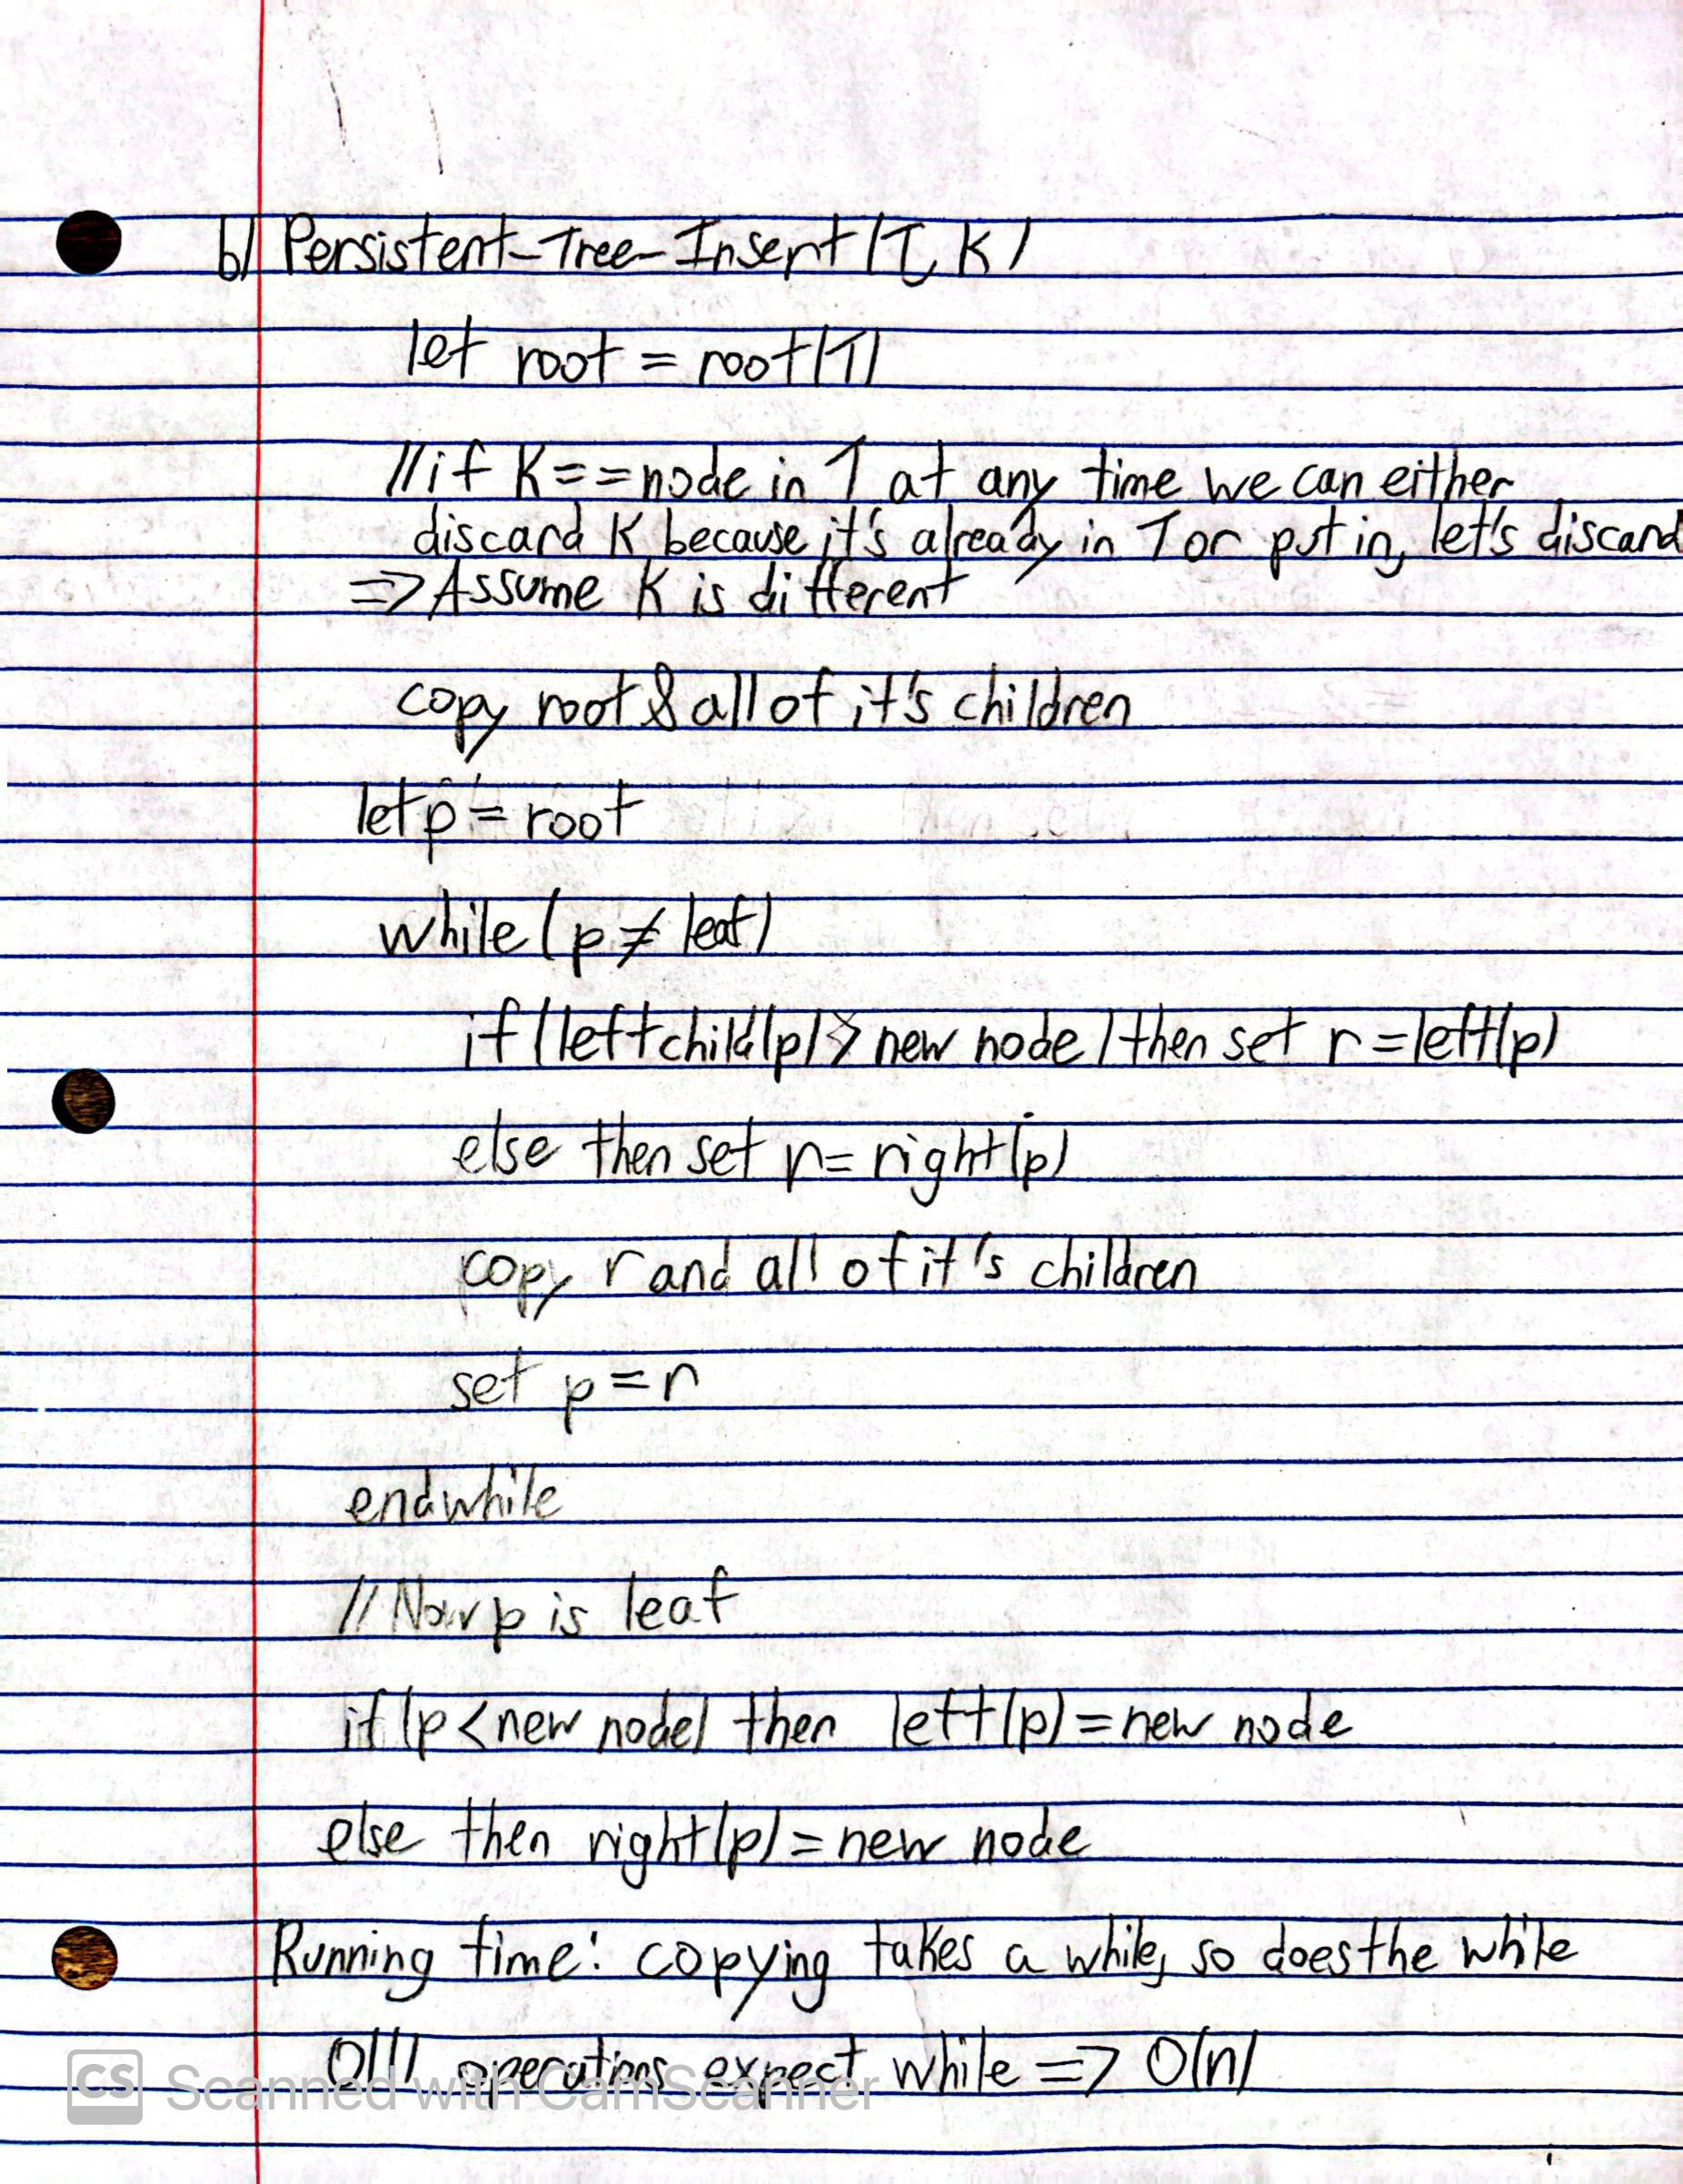 b) Persistent-Tree-Insert(T, K)
let root = root(T)
//if K==node in T at any time we can either
discard K because it's already in T or put in, let's discard
=> Assume K is different
copy root & all of it's children
let p = root
while (p ≠ leaf)
if (left child(p) > new node) then set r = left(p)
else then set r = right(p)
copy r and all of it's children
set p = r
endwhile
// Now p is leaf
if (p < new node) then left(p) = new node
else then right(p) = new node
Running time: copying takes a while, so does the while
O(1) operations expect while => O(n)
CS Scanned with CamScanner